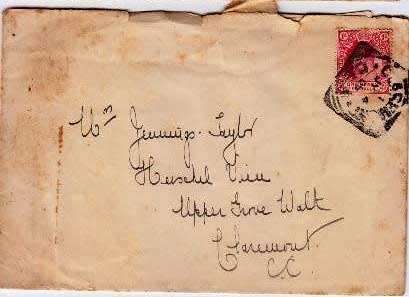 Mrs Jennings-Taylor
Herschel View
Upper Grove Walk
Claremont.
C.C.